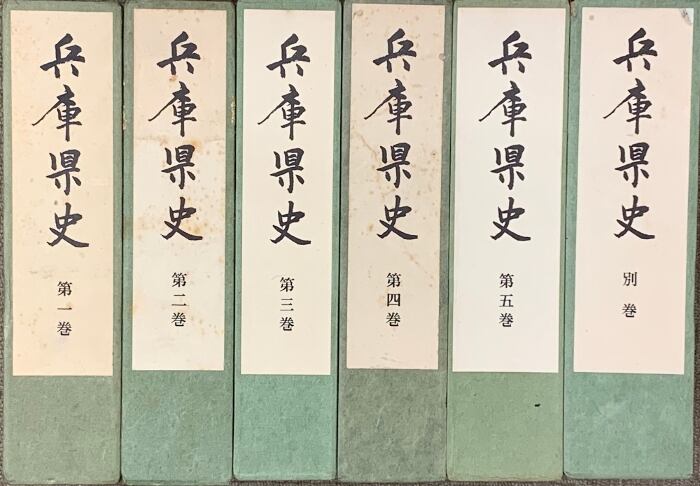 兵庫県史
第一巻
兵庫県史
第二巻
兵庫県史
第三巻
兵庫県史
第四巻
兵庫県史
第五巻
兵庫県史
別巻